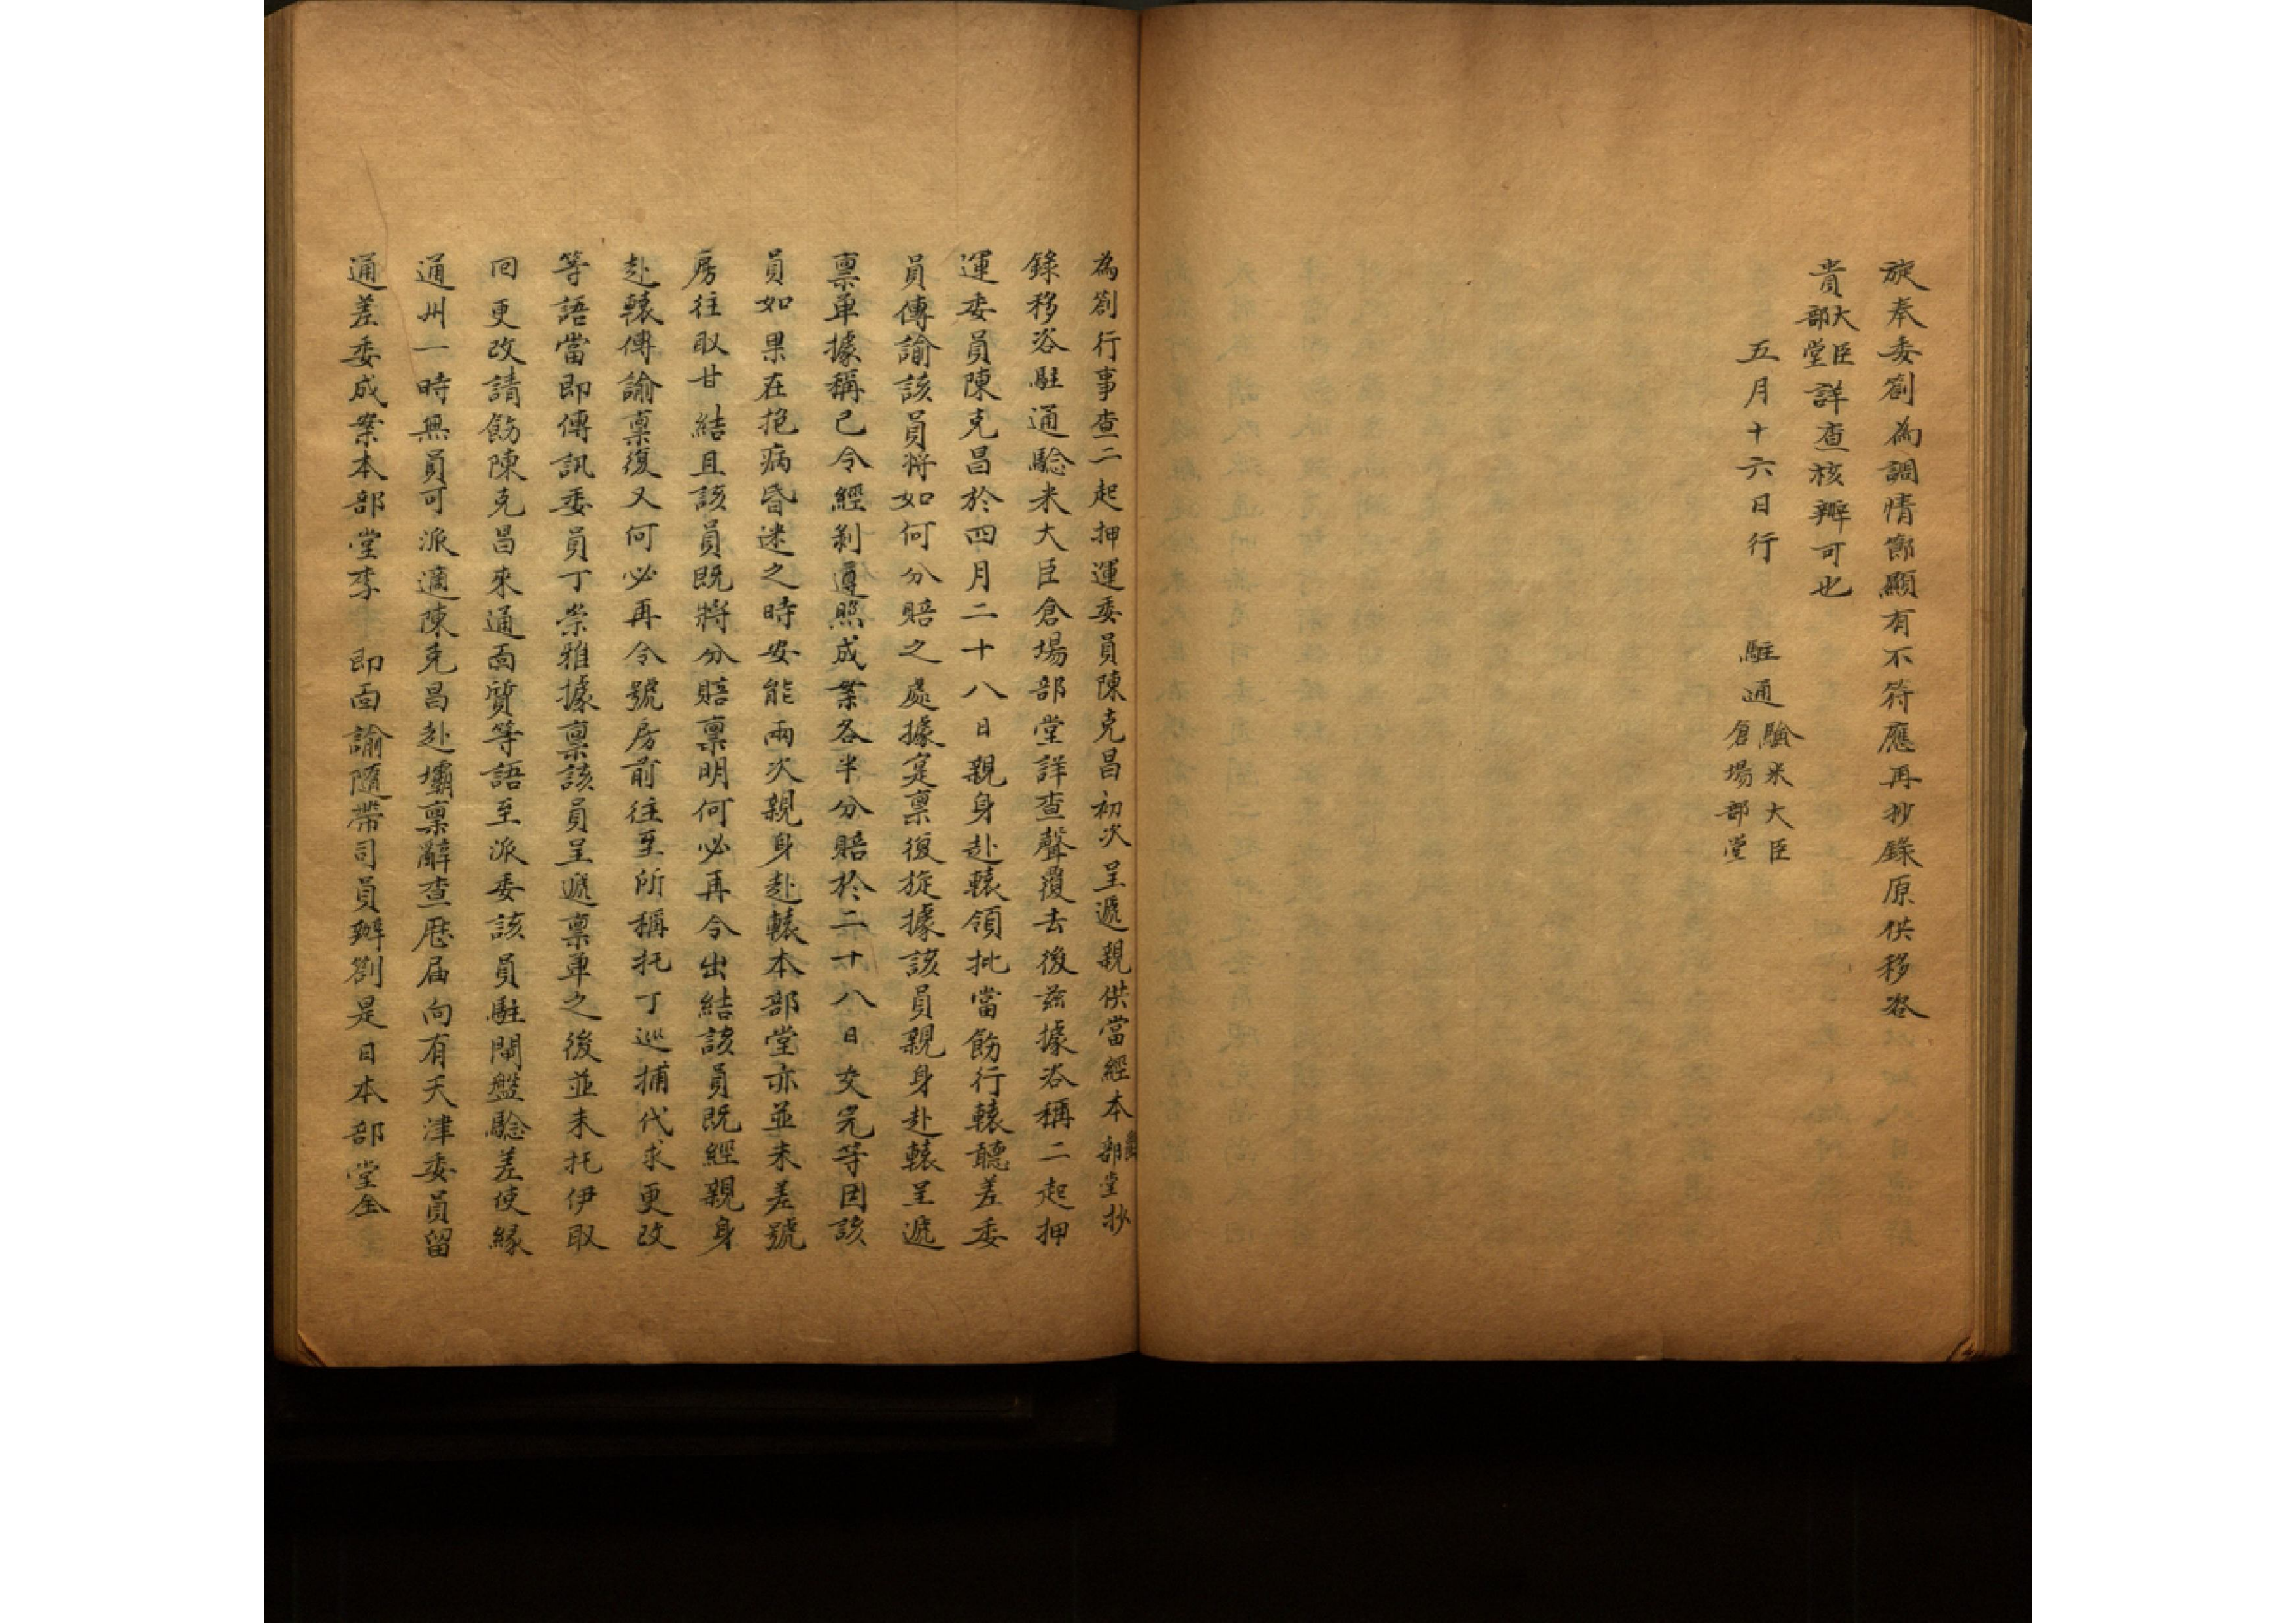 旋奉委劄為調情節顯有不符應再抄錄原供移咨
貴大臣部堂詳查核辦可也
五月十六日行 駐通驗米大臣倉場部堂
為劄行事查二起押運委員陳克昌初次呈遞親供當經本部堂抄
錄移咨駐通驗米大臣倉場部堂詳查聲覆去後茲據咨稱二起押
運委員陳克昌於四月二十八日親身赴轅領批當飭行轅聽差委
員傳諭該員將如何分賠之處據寔禀復旋據該員親身赴轅呈遞
禀单據稱已令經剝遵照成案各半分賠於二十八日交完等因該
員如果在抱病昏迷之時安能兩次親身赴轅本部堂亦並未差號
房往取甘結且該員既將分賠禀明何必再令出結該員既經親身
赴轅傳諭禀復又何必再令號房前往至所稱托丁巡捕代求更改
等語當即傳訊委員丁崇雅據禀該員呈遞禀单之後並未托伊取
回更改請飭陳克昌來通面質等語至派委該員駐閘盤驗差使緣
通州一時無員可派適陳克昌赴壩禀辭查歷届向有天津委員留
通差委成案本部堂李 即面諭隨帶司員辦劄是日本部堂全